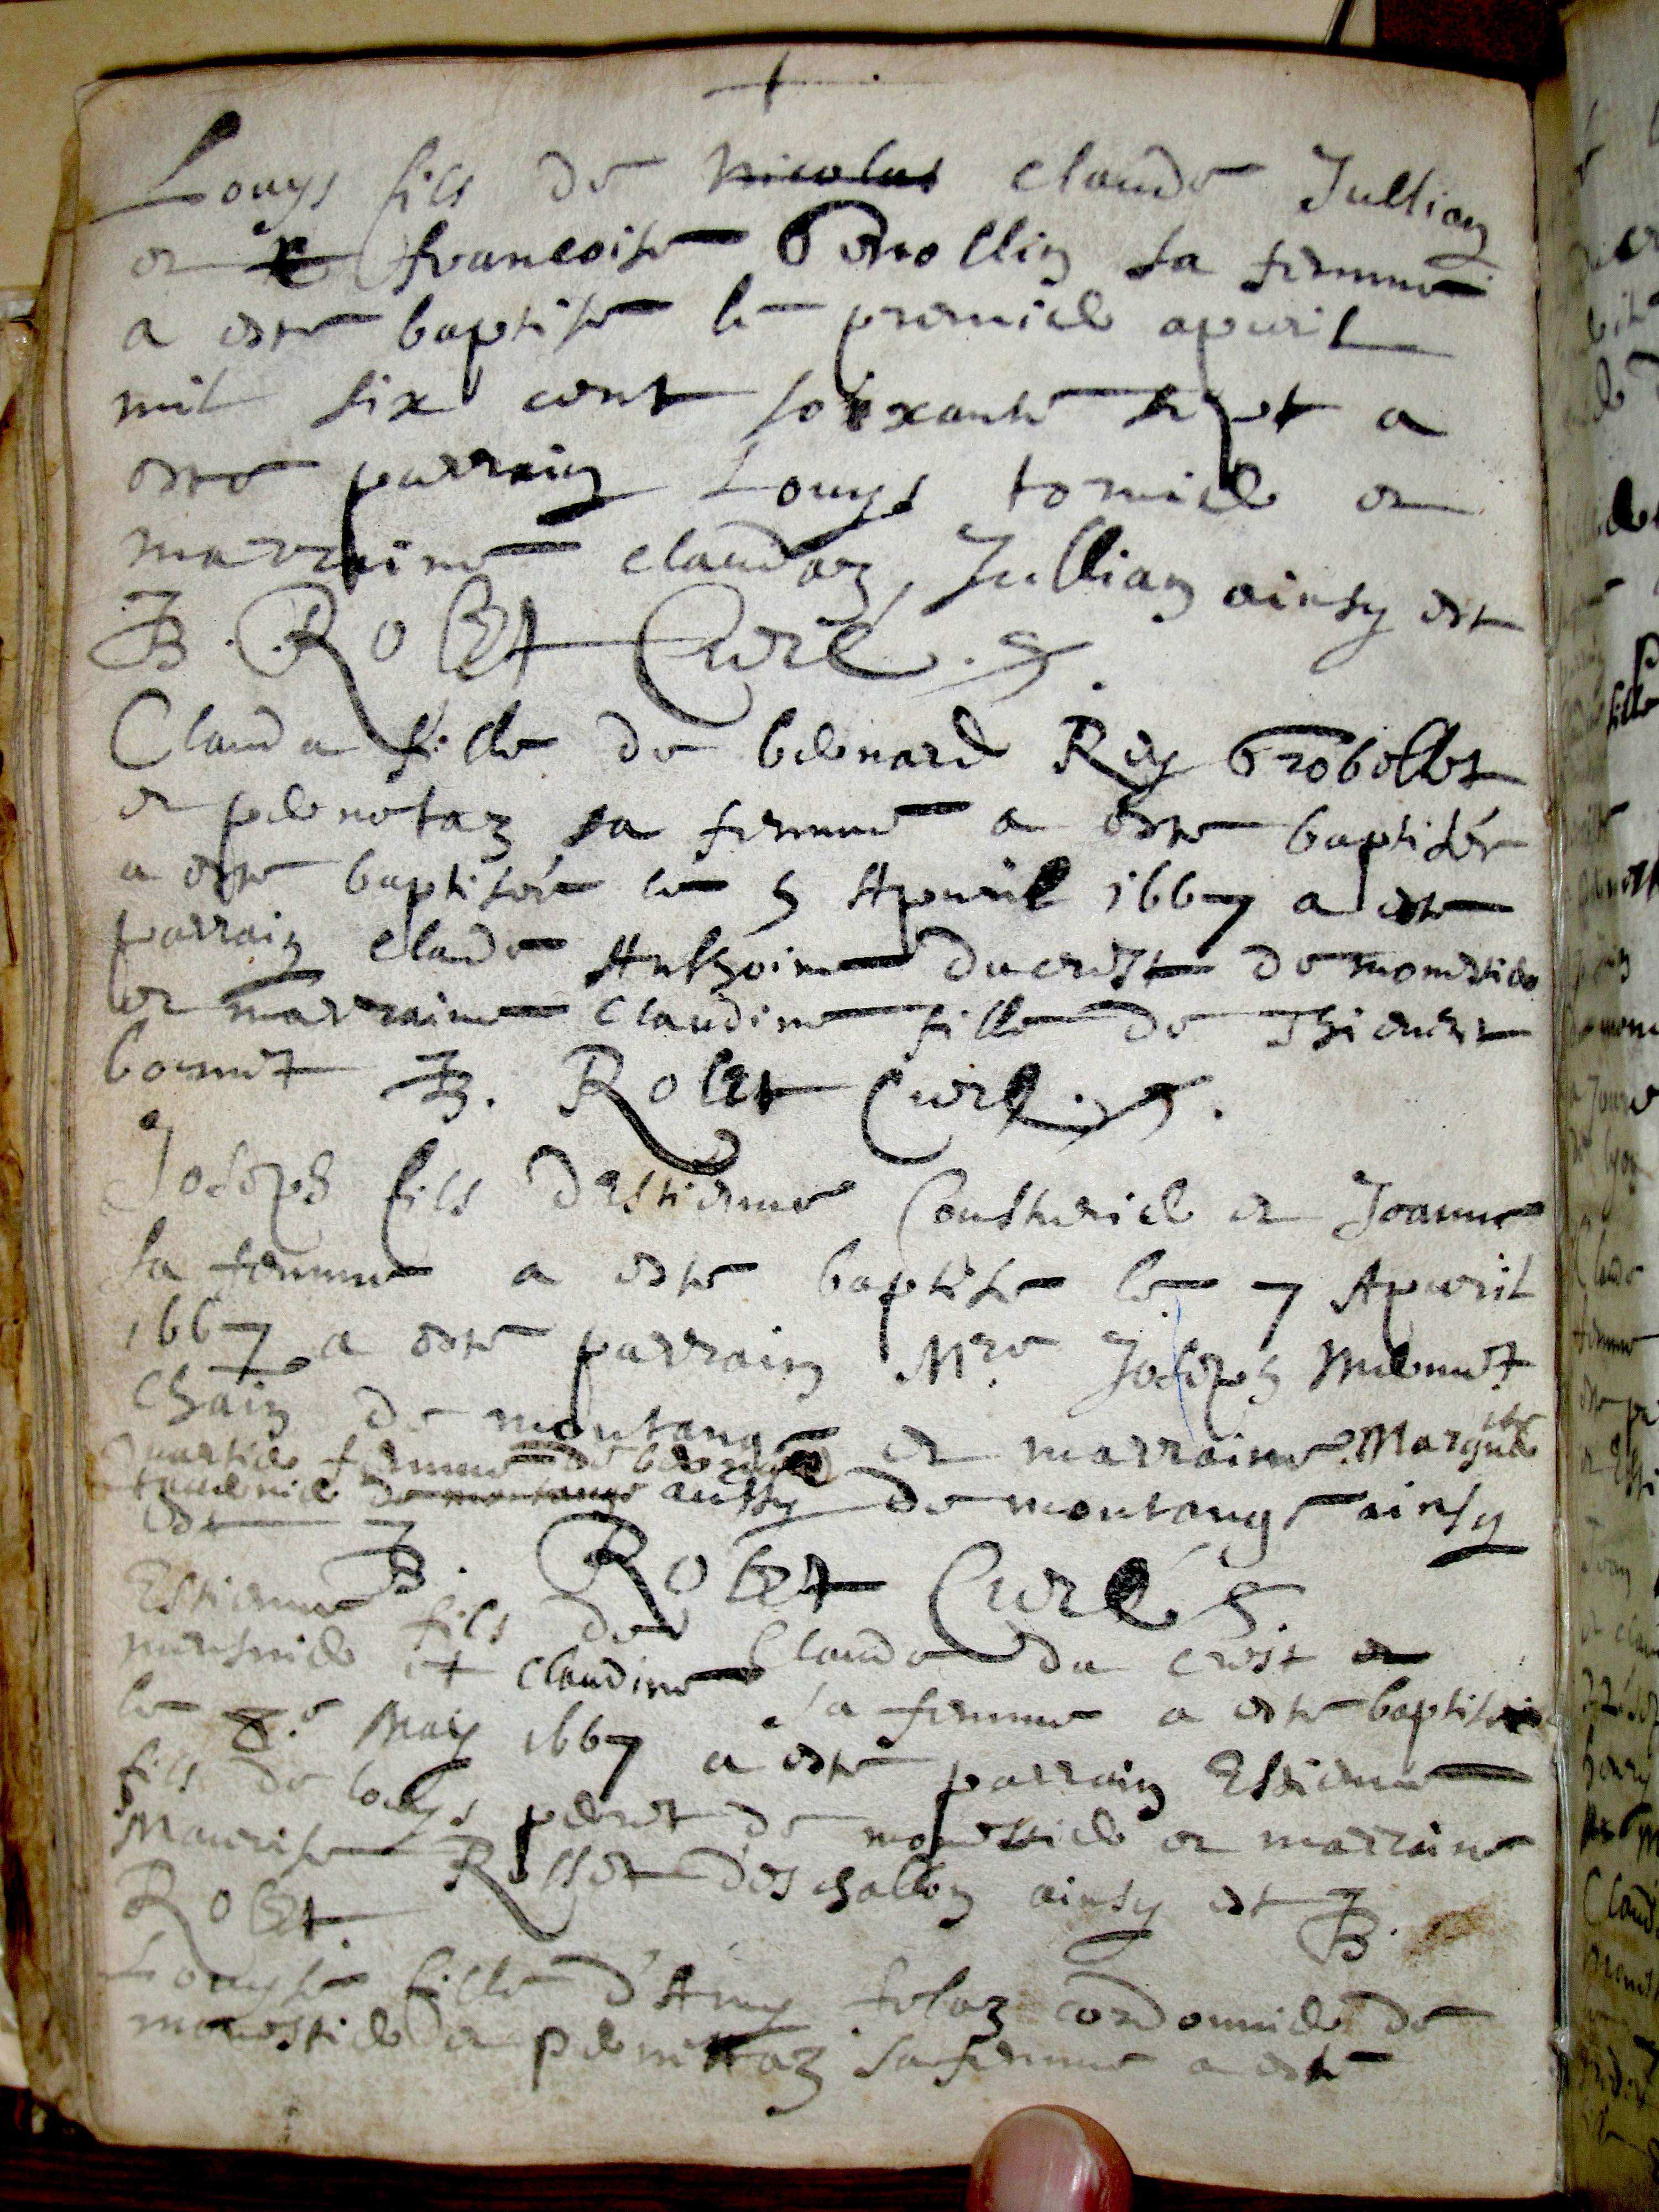 Louys fils de Nicolas claude Jullian
et francoise sa femme
a este baptise le premier apuril
mil six cent soixante sept a
este parrain Louys tornier et
marraine claudaz Jullian ainsy est
JB. Rolet Curé.
Clauda fille de bernard Rey
et pernetaz sa femme a este baptisée
a este baptisée le 5 Apuril 1667 a este
parrain claude Anthoine ducrest de monestier
et marraine Claudine fille de Thieuent
JB. Rolet Curé.
Joseph fils d'Estienne Cousturier et Jeanne
sa femme a este baptise le 7 Apuril
1667 a este parrain Mre. Joseph
Chain de montange et marraine Marguerite
femme de bernard
tauernier de montange aussy de montange ainsy
est JB. Rolet Curé
Estienne fils de Claude du crest
mensnier et claudine sa femme a este baptise
le 8.e May 1667 a este parrain Estienne
fils de louys peret de monestier et marraine
Maurise Rosset d'eschallon ainsy est JB.
Rolet.
Louyse fille d'Amy cordonnier de
monestier et pernetaz sa femme a este